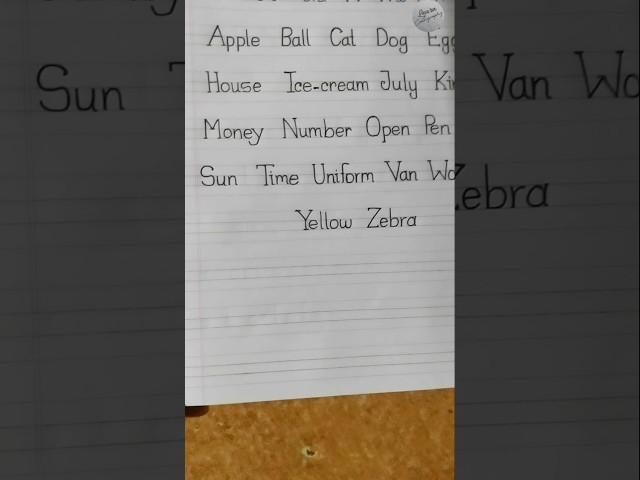 Apple Ball Cat Dog Egg
House Ice-cream July
Money Number Open Pen
Sun Time Uniform Van
Yellow Zebra